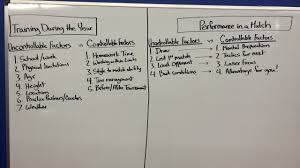 Training During the Year
Uncontrollable Factors vs Controllable Factors
1. School Work
2. Physical Limitations
3. Age
4. Height
5. Locations
6. Practice Partners/Coaches
7. Weather
1. Homework Time
2. Working within Limits
3. Style to match ability
4. Time management
5. Before/After Tournament
Performance in a Match
Uncontrollable Factors vs Controllable Factors
1. Draw
2. Lost 1st match
3. Loud opponent
4. Bad conditions
1. Mental Preparation
2. Tactics for next
3. Laser Focus
4. Advantage for you!